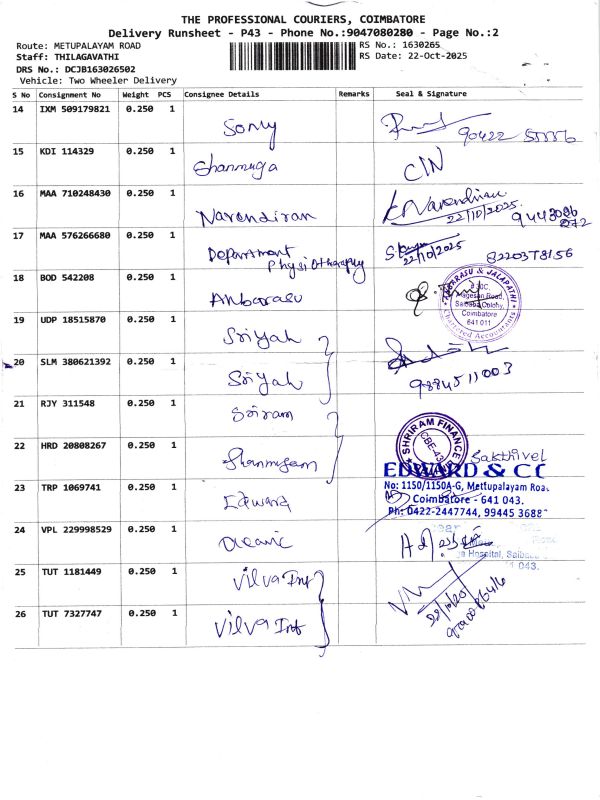 THE PROFESSIONAL COURIERS, COIMBATORE
Delivery Runsheet - P43 - Phone No.:9047080280 - Page No.:2
Route: METUPALAYAM ROAD RS No.: 1630265
Staff: THILAGAVATHI RS Date: 22-Oct-2025
DRS No.: DCJB163026502
Vehicle: Two Wheeler Delivery
S No Consignment No Weight PCS Consignee Details Remarks Seal & Signature
14 IXM 509179821 0.250 1 Sony 90422
15 KDI 114329 0.250 1 Shanmuga CIN
16 MAA 710248430 0.250 1 Narendiran Narendiran
22/10/2025
17 MAA 576266680 0.250 1 Department
Physiotheraphy 22/10/2025
18 BOD 542208 0.250 1 Anbarasu
ANBARASU & JALAPATHI
Mageson Road,
Saibaba Colony,
Coimbatore
641 011
Chartered Accountants
19 UDP 18515870 0.250 1 Sriyah
20 SLM 380621392 0.250 1 Sriyah 9884511003
21 RJY 311548 0.250 1 Sriram
SHRIRAM FINANCE
CBE-43
22 HRD 20808267 0.250 1 Shanmugam Sakthivel
EDWARD & CO
No: 1150/1150A-G, Mettupalayam Road
23 TRP 1069741 0.250 1 Edward Coimbatore - 641 043.
Ph: 0422-2447744, 99445 3688
24 VPL 229998529 0.250 1
Hospital, Saibaba
043.
25 TUT 1181449 0.250 1 Vilva Inf
26 TUT 7327747 0.250 1 Vilva Inf